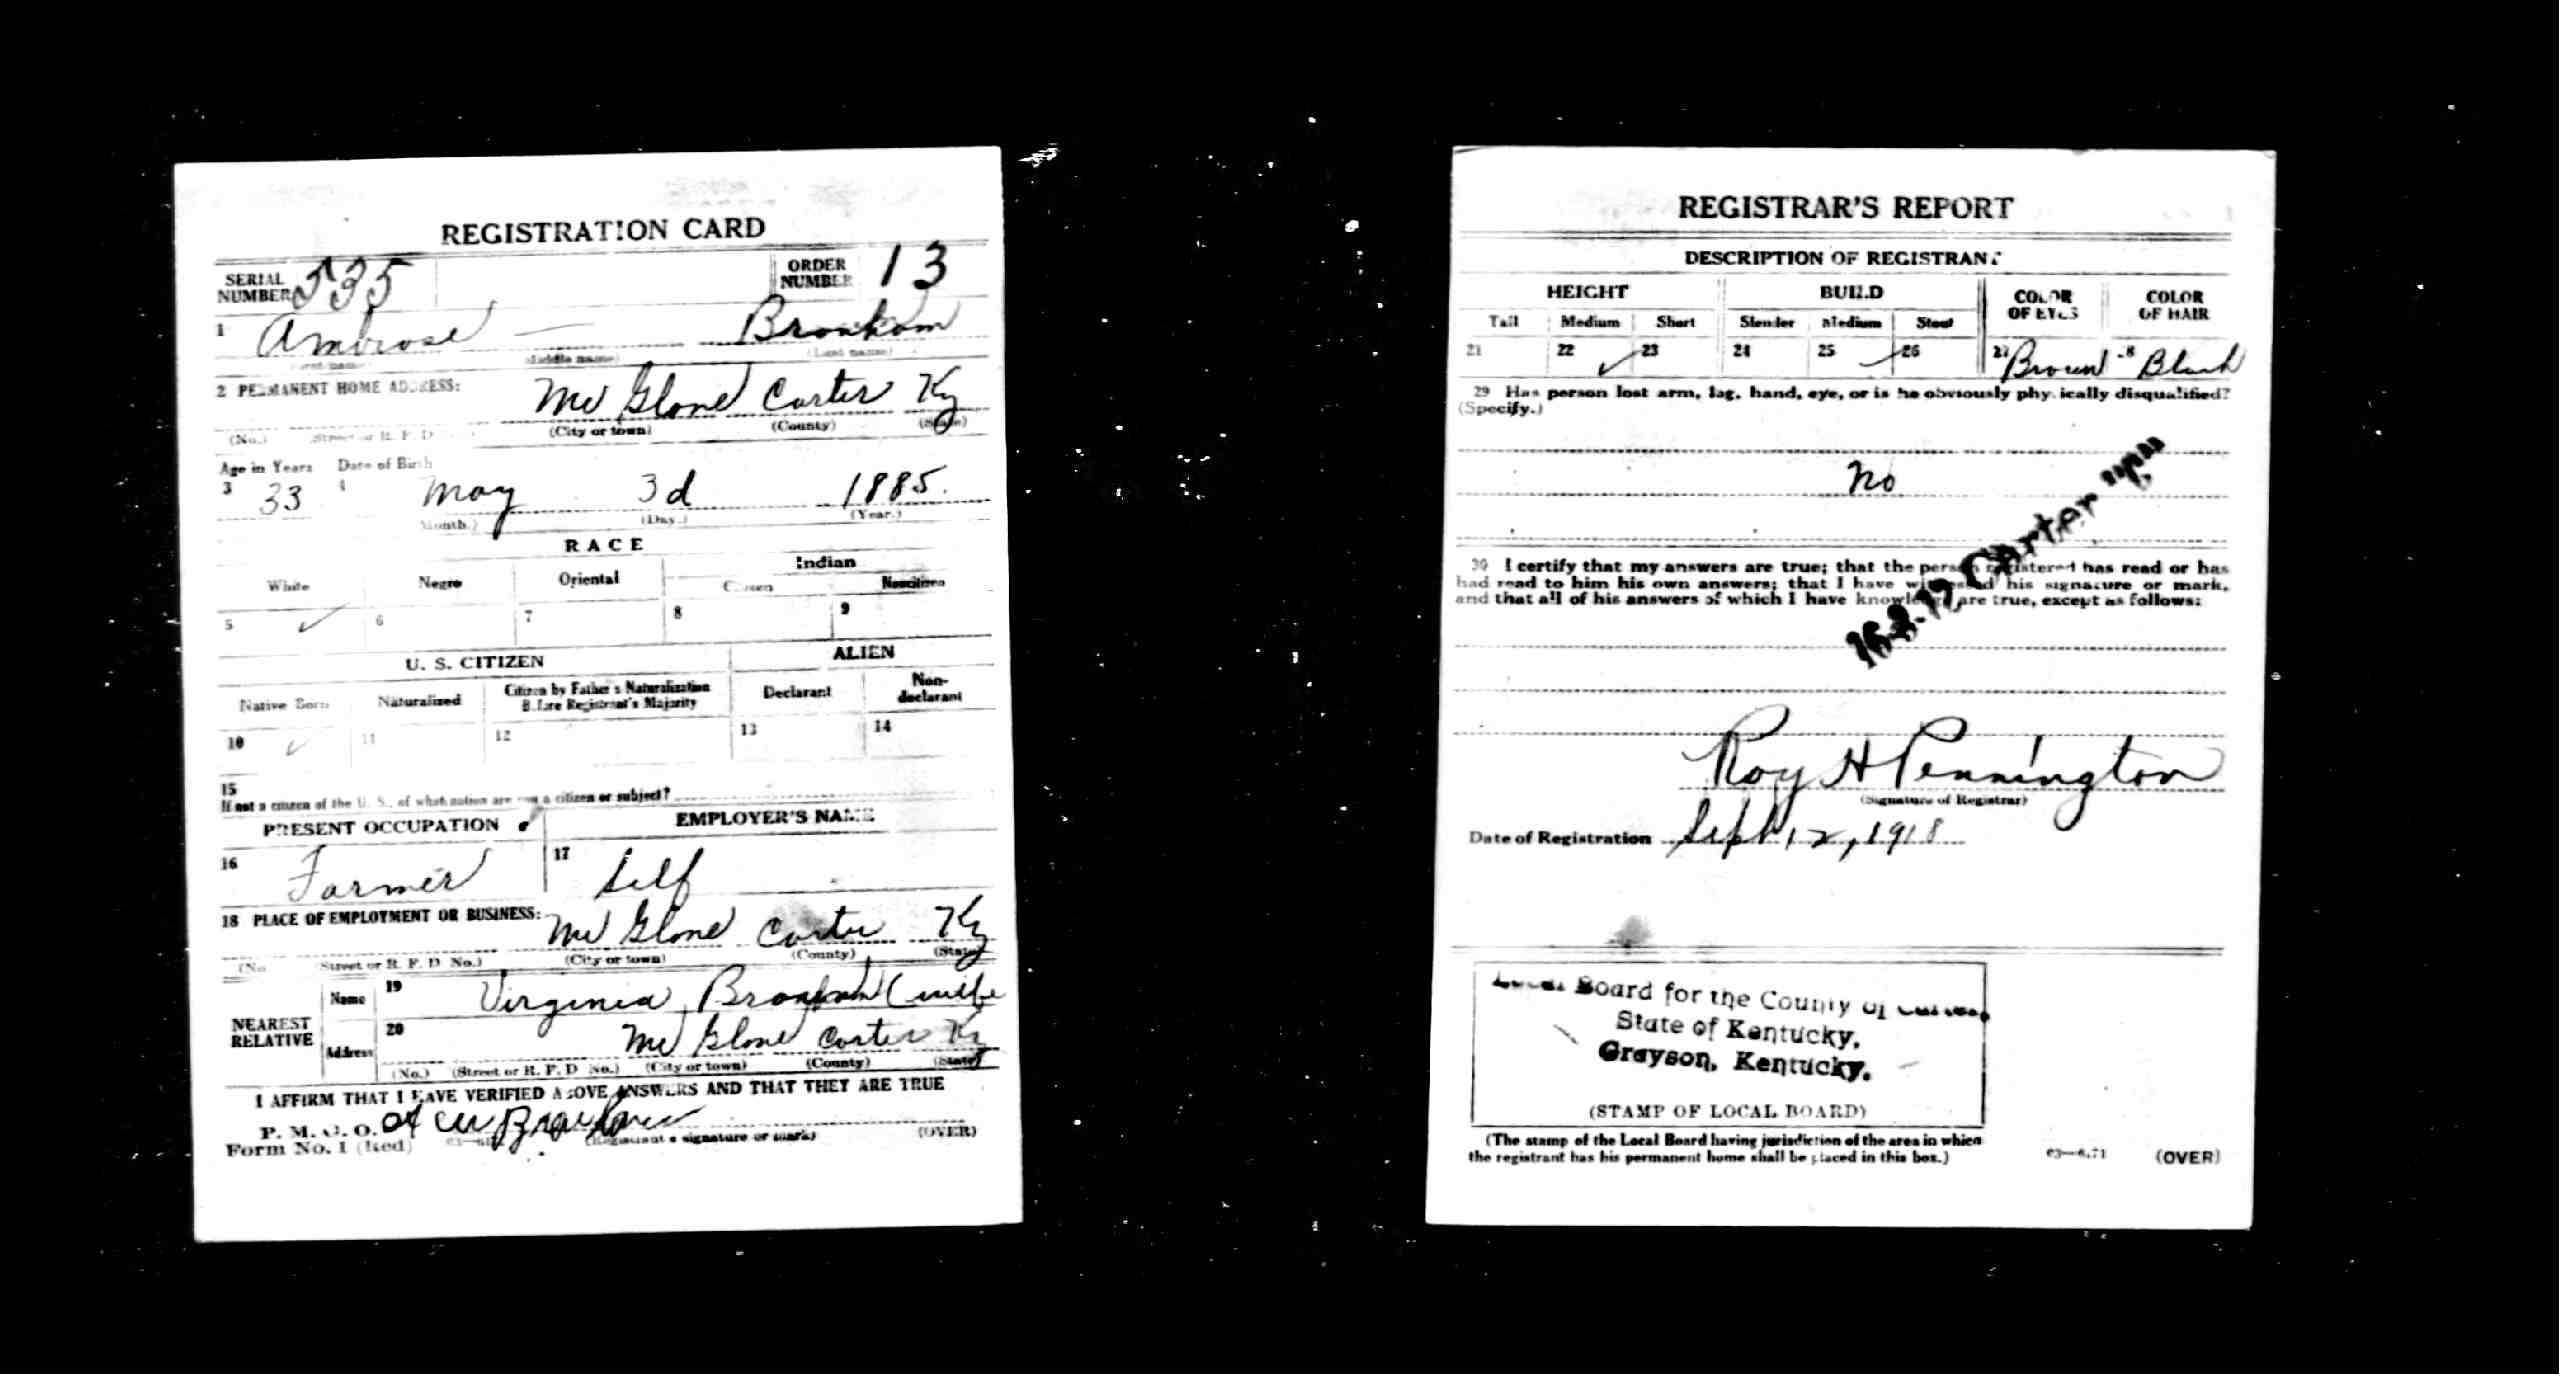 REGISTRATION CARD
SERIAL NUMBER 535 ORDER NUMBER 13
1 Ambrose — Bronham
(Middle name) (Last name)
2 PERMANENT HOME ADDRESS: Mc Glone Carter Ky
(No.) (Street or R. F. D. (City or town) (County) (State)
Age in Years Date of Birth
3 33 4 May 3d 1885.
(Month.) (Day.) (Year.)
RACE
White Negro Oriental Indian
Citizen Noncitizen
5 ✓ 6 7 8 9
U. S. CITIZEN ALIEN
Native Born Naturalized Citizen by Father's Naturalization Before Registrant's Majority Declarant Non-declarant
10 ✓ 11 12 13 14
15
If not a citizen of the U. S., of what nation are you a citizen or subject?
PRESENT OCCUPATION EMPLOYER'S NAME
16 Farmer 17 Self
18 PLACE OF EMPLOYMENT OR BUSINESS: Mc Glone Carter Ky
(No. (Street or R. F. D. No.) (City or town) (County) (State)
NEAREST RELATIVE
Name 19 Virginia (wife
Address 20 Mc Glone Carter Ky
(No.) (Street or R. F. D. No.) (City or town) (County) (State)
I AFFIRM THAT I HAVE VERIFIED ABOVE ANSWERS AND THAT THEY ARE TRUE
P. M. G. O.
Form No. 1 (Red) (Registrant's signature or mark) (OVER)
REGISTRAR'S REPORT
DESCRIPTION OF REGISTRANT
HEIGHT BUILD COLOR OF EYES COLOR OF HAIR
Tall Medium Short Slender Medium Stout
21 22 ✓ 23 24 25 ✓ 26 27 Brown 28 Black
29 Has person lost arm, leg, hand, eye, or is he obviously physically disqualified?
(Specify.)
No
30 I certify that my answers are true; that the person registered has read or has
had read to him his own answers; that I have witnessed his signature or mark,
and that all of his answers of which I have knowledge are true, except as follows:
16-2-19 Carter
Roy H Pennington
(Signature of Registrar)
Date of Registration Sept 12, 1918
Local Board for the County of Carter,
State of Kentucky,
Grayson, Kentucky.
(STAMP OF LOCAL BOARD)
(The stamp of the Local Board having jurisdiction of the area in which
the registrant has his permanent home shall be placed in this box.)
03—6171 (OVER)